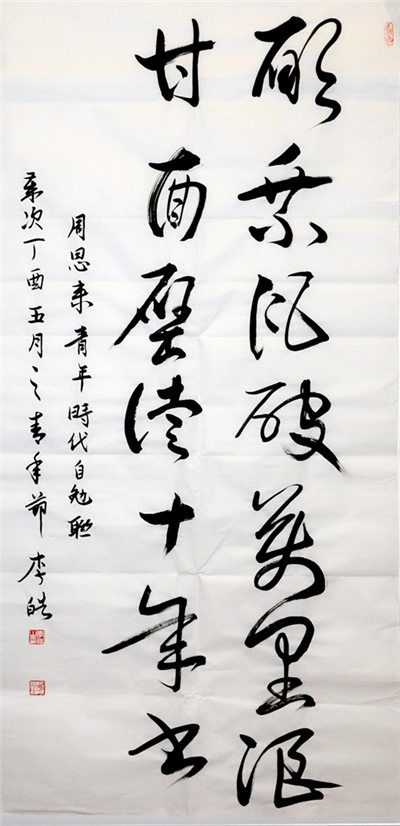 願乘风破萬里浪
甘面壁读十年书
周恩来青年時代自勉聯
歲次丁酉五月之青年節 李皓